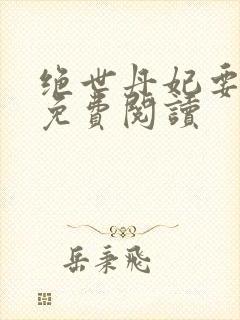 绝世丹妃要
免費閱讀
岳秉飛